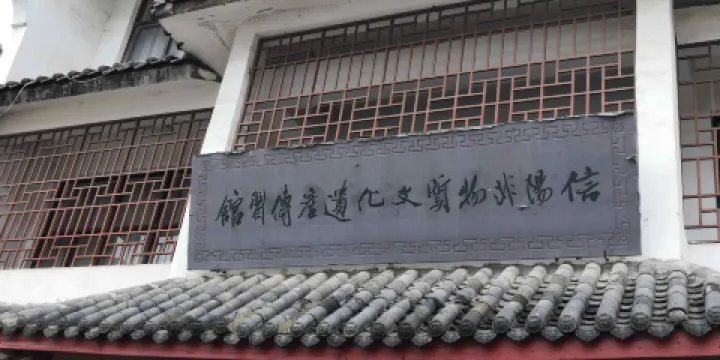 信陽非物質文化遺産傳習館